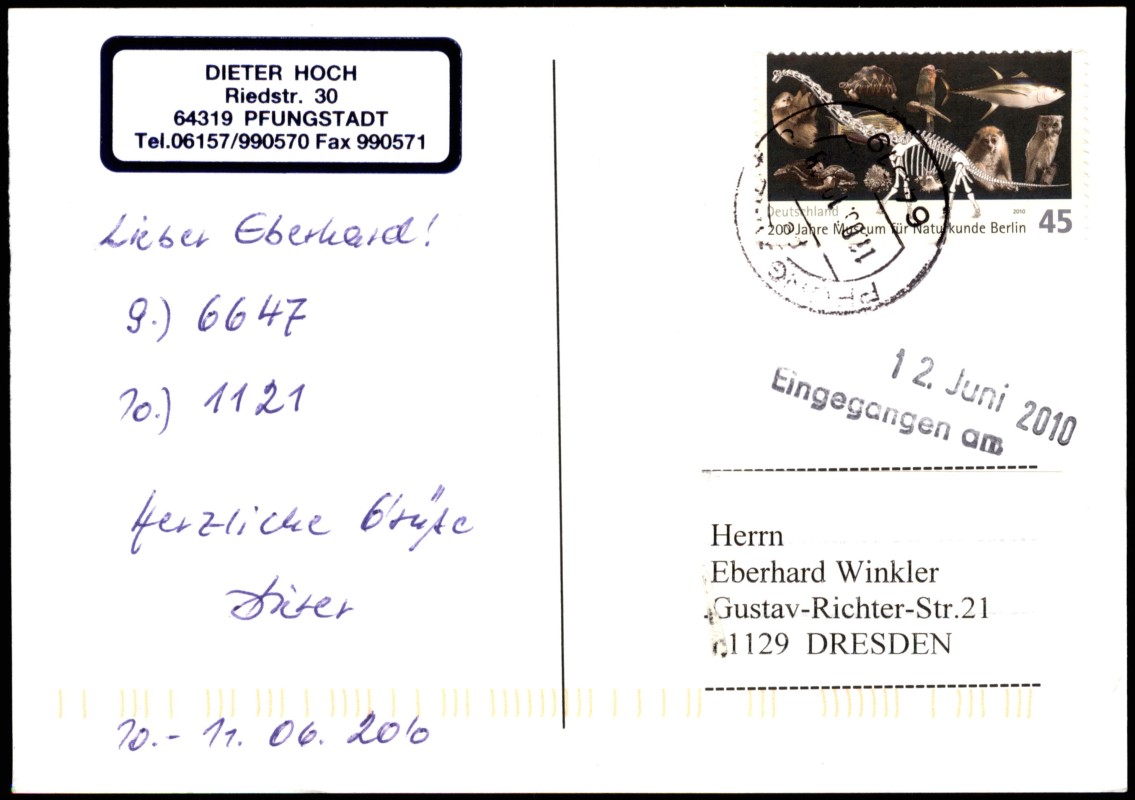 DIETER HOCH
Riedstr. 30
64319 PFUNGSTADT
Tel.06157/990570 Fax 990571
Lieber Eberhard!
9.) 6647
10.) 1121
Herzliche Grüße
Dieter
10.- 11. 06. 2010
Deutschland
2010
45
200 Jahre Museum für Naturkunde Berlin
12. Juni 2010
Eingegangen am
Herrn
Eberhard Winkler
Gustav-Richter-Str.21
1129 DRESDEN